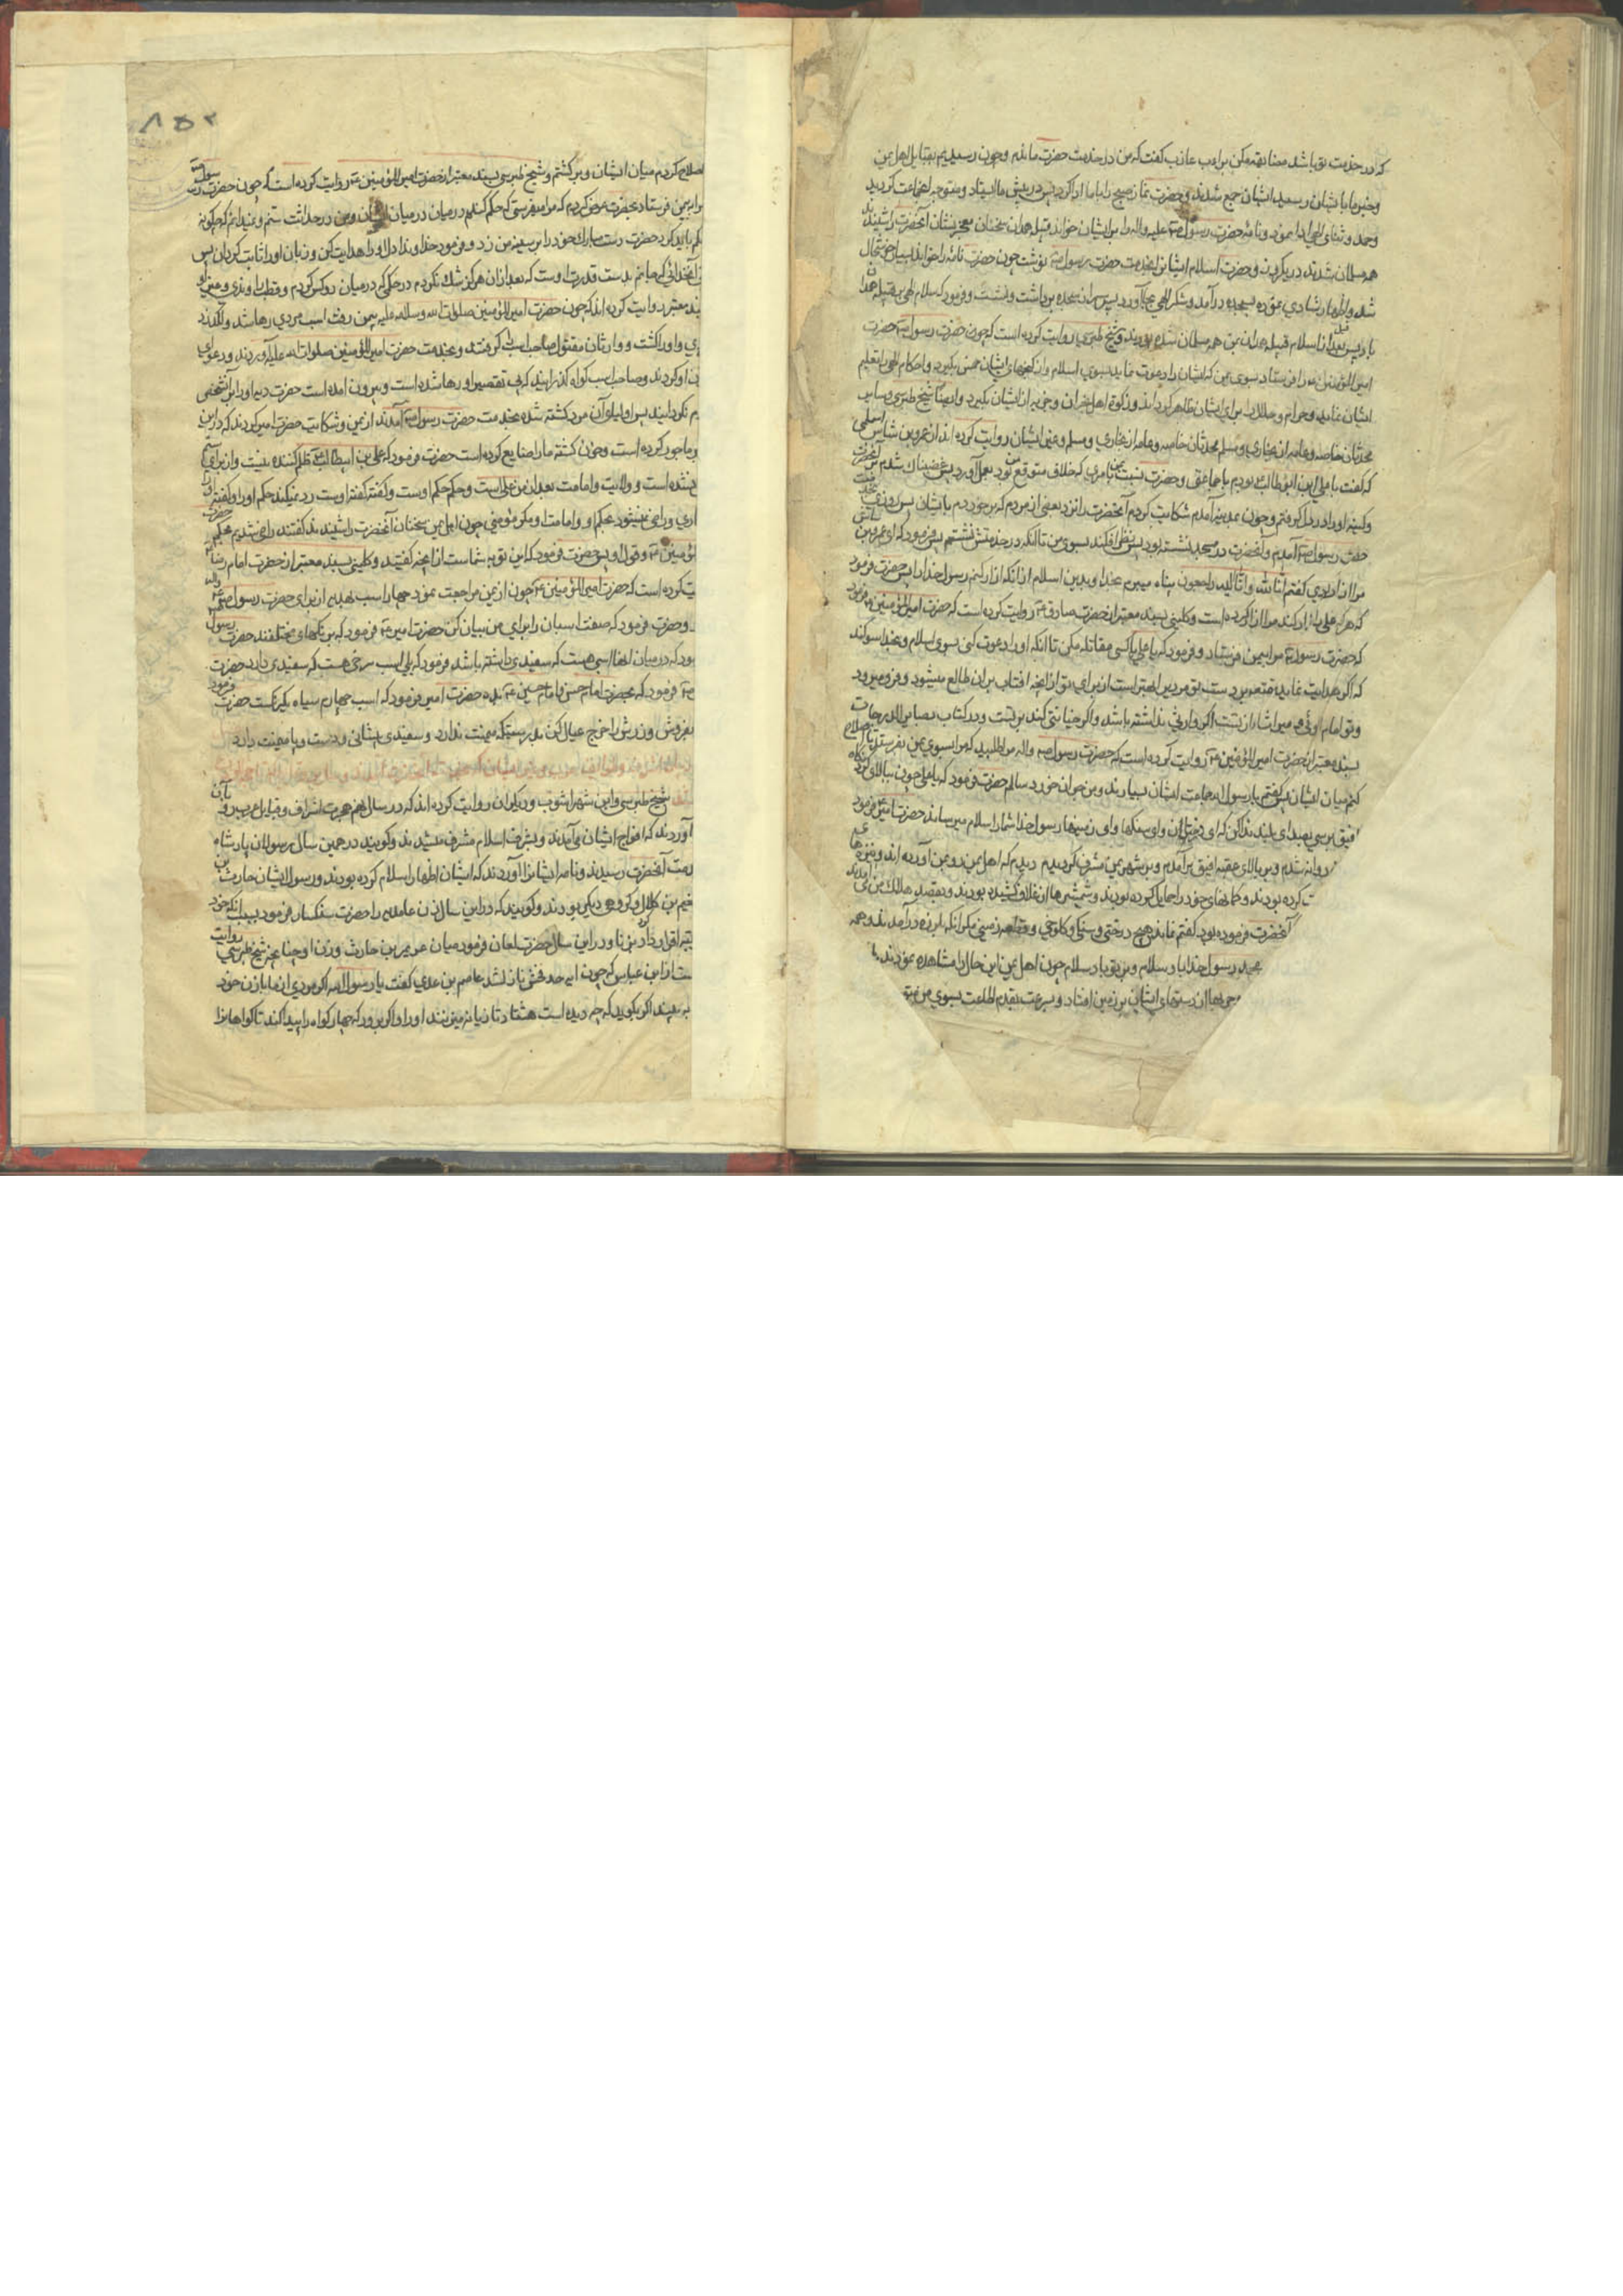 که در خدمت تو باشد مضایقه مکن براء بن عازب گفت که من در خدمت حضرت ماندم و چون رسیدیم بقبایل اهل یمن
و خبر ما بایشان رسید ایشان جمع شدند و حضرت نماز صبح را با ما ادا کرد پس در پیش ما ایستاد و متوجه اجتماعت گردید
و حمد و ثنای الهی ادا نمود و نامهٔ حضرت رسول ص علیه واله را بر ایشان خواند قبیله همدان سخنان معجز نشان آنحضرت را شنیدند
همه مسلمان شدند در یکروز و حضرت اسلام ایشانرا بخدمت حضرت رسول ص نوشت چون حضرت نامه را خواند بسیار خوشحال
شد و اظهار شادی نموده بسجده درآمد و شکر الهی بجا آورد پس سر از سجده برداشت و نشست و فرمود که سلام الهی بر قبیله همدان
باد پس بعد از اسلام قبیله همدان اهل یمن همه مسلمان شده بودند و شیخ طبرسی روایت کرده است که چون حضرت رسول ص حضرت
امیر المؤمنین ع را فرستاد بسوی یمن که ایشان را دعوت نماید بسوی اسلام و از گنجهای ایشان خمس بگیرد و احکام الهی را تعلیم
ایشان نماید و حرام و حلال را برای ایشان ظاهر گرداند و زکوة اهل نجران و جزیه از ایشان بگیرد و ایضا شیخ طبرسی و سایر
محدثان خاصه و عامه از بخاری و مسلم و غیر ایشان روایت کرده اند از عمرو بن شاس اسلمی
که گفت با علی ابن ابی طالب بودیم با جماعتی و حضرت نسبت بمن بامری که خلاف متوقع من بود بعمل آورد پس غضبناک شدم بر آنحضرت
و کینه او را در دل گرفتم و چون بمدینه آمدم شکایت کردم آنحضرت را نزد بعضی از مردم که برخوردم بایشان پس روزی بخدمت
حضرت رسول ص آمدیم و آنحضرت در مسجد نشسته بود پس نظر افکند بسوی من تا آنکه در خدمتش نشستم پس فرمود که ای عمرو بن شاس
مرا آزار دادی گفتم انا لله و انا الیه راجعون پناه میبرم بخدا و بدین اسلام از آنکه آزار کنم رسول خدا را پس حضرت فرمود
که هرکه علی را آزار کند مرا آزار کرده است و کلینی بسند معتبر از حضرت صادق ع روایت کرده است که حضرت امیر المؤمنین ع فرمود
که حضرت رسول ص مرا بیمن فرستاد و فرمود که یا علی با کسی مقاتله مکن تا آنکه او را دعوت کنی بسوی اسلام و بخدا سوگند
که اگر هدایت نماید خدا بر دست تو مردی را بهتر است از برای تو از آنچه آفتاب بر آن طالع میشود و فرو میرود
و تو امام اوئی و میراث او از تست اگر وارثی نداشته باشد و اگر جنایتی کند بر تست و در کتاب بصایر الدرجات
بسند معتبر از حضرت امیر المؤمنین ع روایت کرده است که حضرت رسول ص واله مرا طلبید که مرا بسوی یمن بفرستد تا اصلاح
کنم میان ایشان پس گفتم یا رسول الله جماعت ایشان بسیارند و من جوان خورد سالم حضرت فرمود که یا علی چون ببالای گردنگاه
افیق برسی بصدای بلند ندا کن که ای درختان و ای سنگها و ای زمینها رسول خدا شما را سلام میرساند حضرت امیر ع فرمود
روانه شدم و بر بالای عقبه افیق برآمدم و بر شهر یمن مشرف گردیدم دیدم که اهل یمن رو بمن آورده اند و نیزها
کرده بودند و کمانهای خود را حمایل کرده بودند و شمشیرها از غلاف کشیده بودند و بقصد هلاک من می آمدند
آنحضرت فرموده بود گفتم نماند هیچ درختی و سنگی و کلوخی و قطعه زمینی مگر آنکه بلرزه درآمدند و همه
محمد رسول خدا باد سلام و بر تو باد سلام چون اهل یمن این حال را مشاهده نمودند
حربها از دستهای ایشان بر زمین افتاد و بسرعت بقدم اطاعت بسوی من
۸۵۲
اصلاح کردم میان ایشان و برگشتم و شیخ طبرسی بسند معتبر از حضرت امیر المؤمنین ع روایت کرده است که چون حضرت رسول
مرا بیمن فرستاد بحضرت عرض کردم که مرا میفرستی که حکم کنم در میان ایشان و من در حداثت سنم و نمیدانم که چگونه
حکم باید کرد حضرت دست مبارک خود را بر سینه من زد و فرمود خداوندا دل او را هدایت کن و زبان او را ثابت گردان پس
آنخدائی که جانم بدست قدرت اوست که بعد از آن هرگز شک نکردم در حکمی که درمیان دو کس کردم و قطب راوندی و غیر او
بسند معتبر روایت کرده اند که چون حضرت امیر المؤمنین صلوات الله و سلامه علیه بیمن رفت اسب مردی رها شد و لگد زد
و او را کشت و وارثان مقتول صاحب اسب را گرفتند و بخدمت حضرت امیر المؤمنین صلوات الله علیه آوردند و دعوای
او کردند و صاحب اسب گواه گذرانید که بی تقصیر او رها شده است و بیرون آمده است حضرت دیه او را بر آنشخص
نگردانید پس اولیای آن مرد کشته شده بخدمت حضرت رسول ص آمدند از یمن و شکایت حضرت امیر کردند که در این
بما جور کرده است و خون کشته ما را ضایع کرده است حضرت فرمود که علی بن ابیطالب ع ظلم کننده نیست و از برای ستم
نشده است و ولایت و امامت بعد از من با علی است و حکم حکم اوست و گفته گفته اوست رد نمیکند حکم او را و گفته او را
و راضی نمیشود بحکم و امامت او مگر مؤمنی چون اهل یمن سخنان آنحضرت را شنیدند گفتند راضی شدیم بحکم حضرت
المؤمنین ع و قول او پس حضرت فرمود که این توبه شماست از آنچه گفتید و کلینی بسند معتبر از حضرت امام رضا
روایت کرده است که حضرت امیر المؤمنین ع چون از یمن مراجعت نمود چهار اسب بهدیه از برای حضرت رسول ص واله
و حضرت فرمود که صفت اسبان را برای من بیان کن حضرت امیر ع فرمود که برنگهای مختلفند حضرت رسول
بود که درمیان آنها اسبی هست که سفیدی داشته باشد فرمود که بلی اسب سرخی هست که سفیدی دارد حضرت
ص فرمود که بحضرت امام حسن و امام حسین ع بده حضرت امیر فرمود که اسب چهارم سیاه یکرنگست حضرت فرمود
بفروش و زرش را خرج عیال کن بدرستیکه میمنت ندارد و سفیدی پیشانی و دست و پا میمنت دارد
شیخ طبرسی و ابن شهر آشوب و دیگران روایت کرده اند که در سال نهم هجرت اشراف و قبایل عرب رو بآن
آوردند که افواج ایشان می آمدند و بشرف اسلام مشرف میشدند و گویند در همین سال رسولان پادشاه
بخدمت آنحضرت رسیدند و نامه ایشانرا آوردند که ایشان اظهار اسلام کرده بودند و رسول ایشان حارث بن
نعیم بن کلال و گروهی دیگر بودند و گویند که در این سال زن عامدیه را حضرت سنگسار فرمود بسبب آنکه خود
اقرار کرد بزنا و در این سال حضرت لعان فرمود میان عویمر بن حارث و زن او چنانچه شیخ طبرسی روایت
است از ابن عباس که چون آیه حد فحش نازل شد عاصم بن عدی گفت یا رسول الله اگر مردی از ما با زن خود
به بیند اگر بگوید که چه دیده است هشتاد تازیانه میزنند او را و اگر برود که چهار گواه را پیدا کند تا گواهانرا